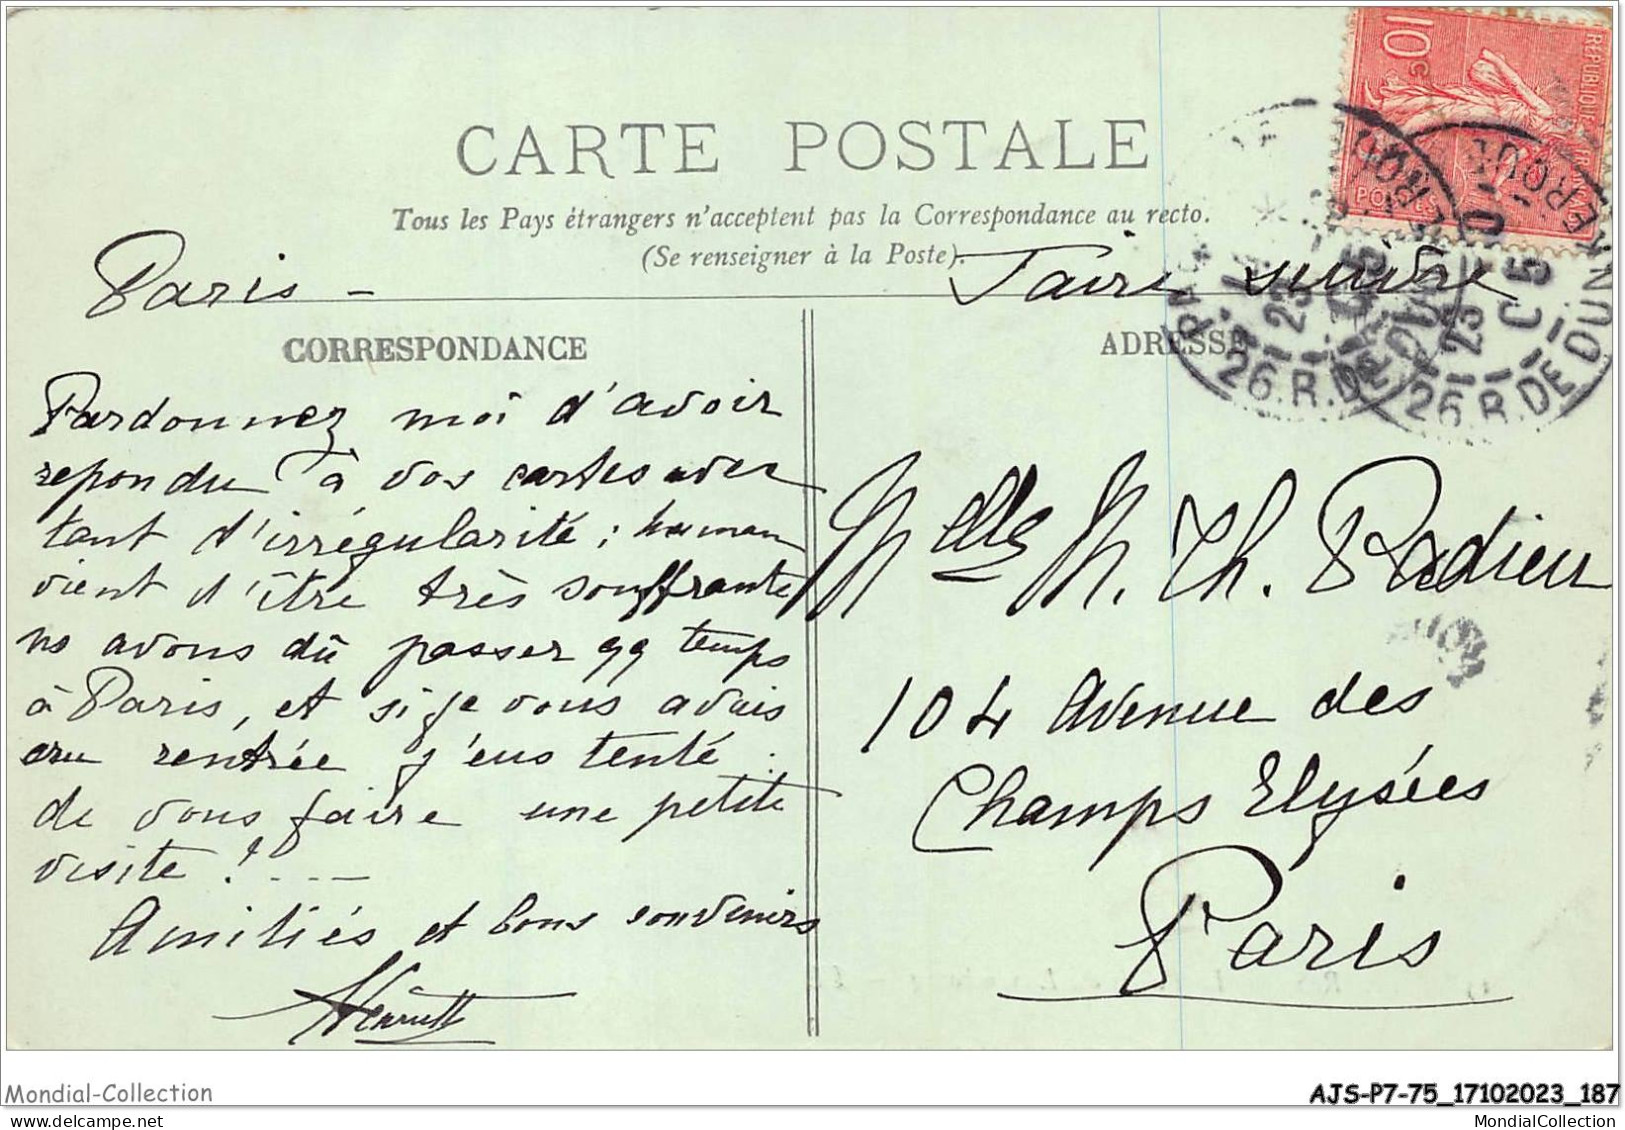 CARTE POSTALE
Tous les Pays étrangers n'acceptent pas la Correspondance au recto.
(Se renseigner à la Poste).
10c
REPUBLIQUE FRANÇAISE
POSTES
Paris -
Faire suivre
CORRESPONDANCE
ADRESSE
Pardonnez moi d'avoir
repondu à vos cartes avec
tant d'irrégularité ; maman
vient d'être très souffrante
ns avons dû passer qq temps
à Paris, et si je vous avais
cru rentrée j'eus tenté
de vous faire une petite
visite ! ...
Amitiés et bons souvenirs
Henriette
Melles M. Th. Radieu
104 Avenue des
Champs Elysées
Paris
26 R. DE DUNKERQUE
23
C5
26 R. DE DUNKERQUE
23
C5
Mondial-Collection
AJS-P7-75_17102023_187
MondialCollection
MondialCollection